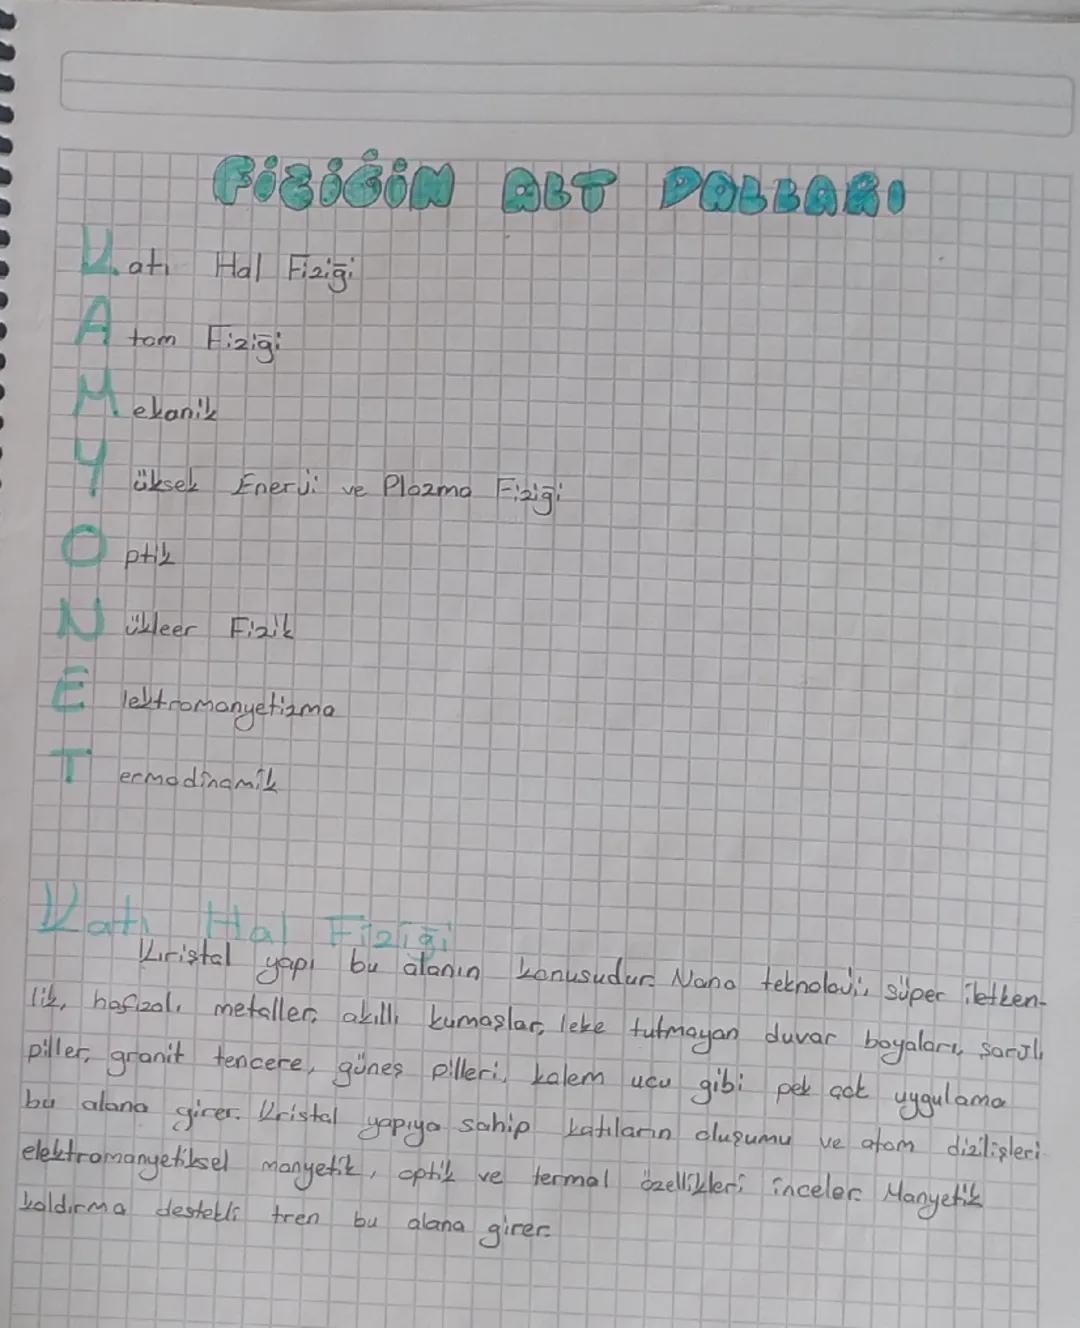 FİZİĞİN ALT DALLARI
Katı Hal Fiziği
Atom Fiziği
Mekanik
Yüksek Enerji ve Plazma Fiziği
Optik
Nükleer Fizik
Elektromanyetizma
Termodinamik
Katı Hal Fiziği
Kristal yapı bu alanın konusudur. Nano teknoloji, süper iletken-
lik, hafızalı metaller, akıllı kumaşlar, leke tutmayan duvar boyaları, şarjlı
piller, granit tencere, güneş pilleri, kalem ucu gibi pek çok uygulama
bu alana girer. Kristal yapıya sahip katıların oluşumu ve atom dizilişleri
elektromanyetiksel manyetik, optik ve termal özellikleri inceler. Manyetik
kaldırma destekli tren bu alana girer.